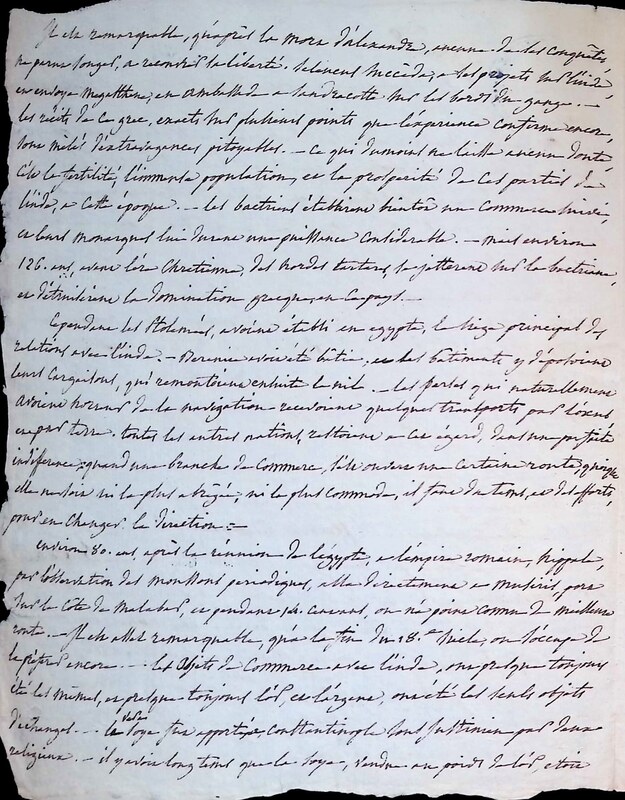 Il est remarquable, qu'après la mort d'alexandre, aucune de ses conquêtes
ne parut songer, a recouvrer sa liberté. Seleucus succéda, a ses projets sur l'inde
en envoya Megasthène, en ambassade a Sandracotte sur les bords du gange. —
les récits de ce grec, exacts sur plusieurs points que l'expérience confirme encore,
sont mêlés d'extravagances pitoyables. — ce qui dumoins ne laisse aucun doute
c'est la fertilité, l'immense population, et la prosperité de ces parties de
l'inde, a cette époque. — les bactriens établirent bientôt un commerce suivi,
et leurs monarques lui durent une puissance considerable. — mais environ
126. ans, avant l'ère Chretienne, des hordes tartares, se jetterent sur la bactriane,
et détruisirent la domination grecque, en ce pays. —
Cependant les Ptolemées, avoient établi en egypte, le siege principal des
relations avec l'inde. — Berenice avoit été bâtie, et les bâtiments y déposoient
leurs cargaisons, qui remontoient ensuite le nil. — les perses qui naturellement
avoient horreur de la navigation recevoient quelques transports par l'oxus
et par terre. toutes les autres nations, restoient a cet égard, dans une parfaite
indiference; quand une branche de commerce, s'est ouverte une certaine route, quoique
elle ne soit ni la plus abrégée, ni la plus commode, il faut du tems, et des efforts,
pour en changer la direction. =
environ 80. ans, après la réunion de l'égypte, a l'empire romain, hippale,
par l'observation des moussons periodiques, alla directement a musiris, port
sur la côte de malabar, et pendant 14. on n'a point connu de meilleure
route. — Il est assez remarquable, qu'a la fin du 18.e siecle, on s'occupe de
la encore. — les objets de commerce avec l'inde, ont presque toujours
été les mêmes, et presque toujours l'or, et l'argent, ont été les seuls objets
d'échanges. — le soye fut apporté a constantinople sous Justinien par deux
religieux. — il y avoit longtems que la soye, vendue au poids de l'or, étoit